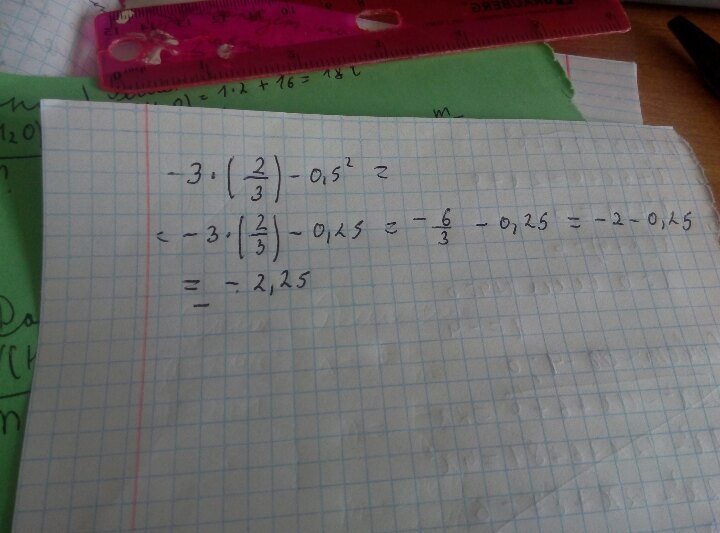 1·2 + 16 = 18
-3·(2/3) - 0,5² =
= -3·(2/3) - 0,25 = -6/3 - 0,25 = -2 - 0,25
= - 2,25